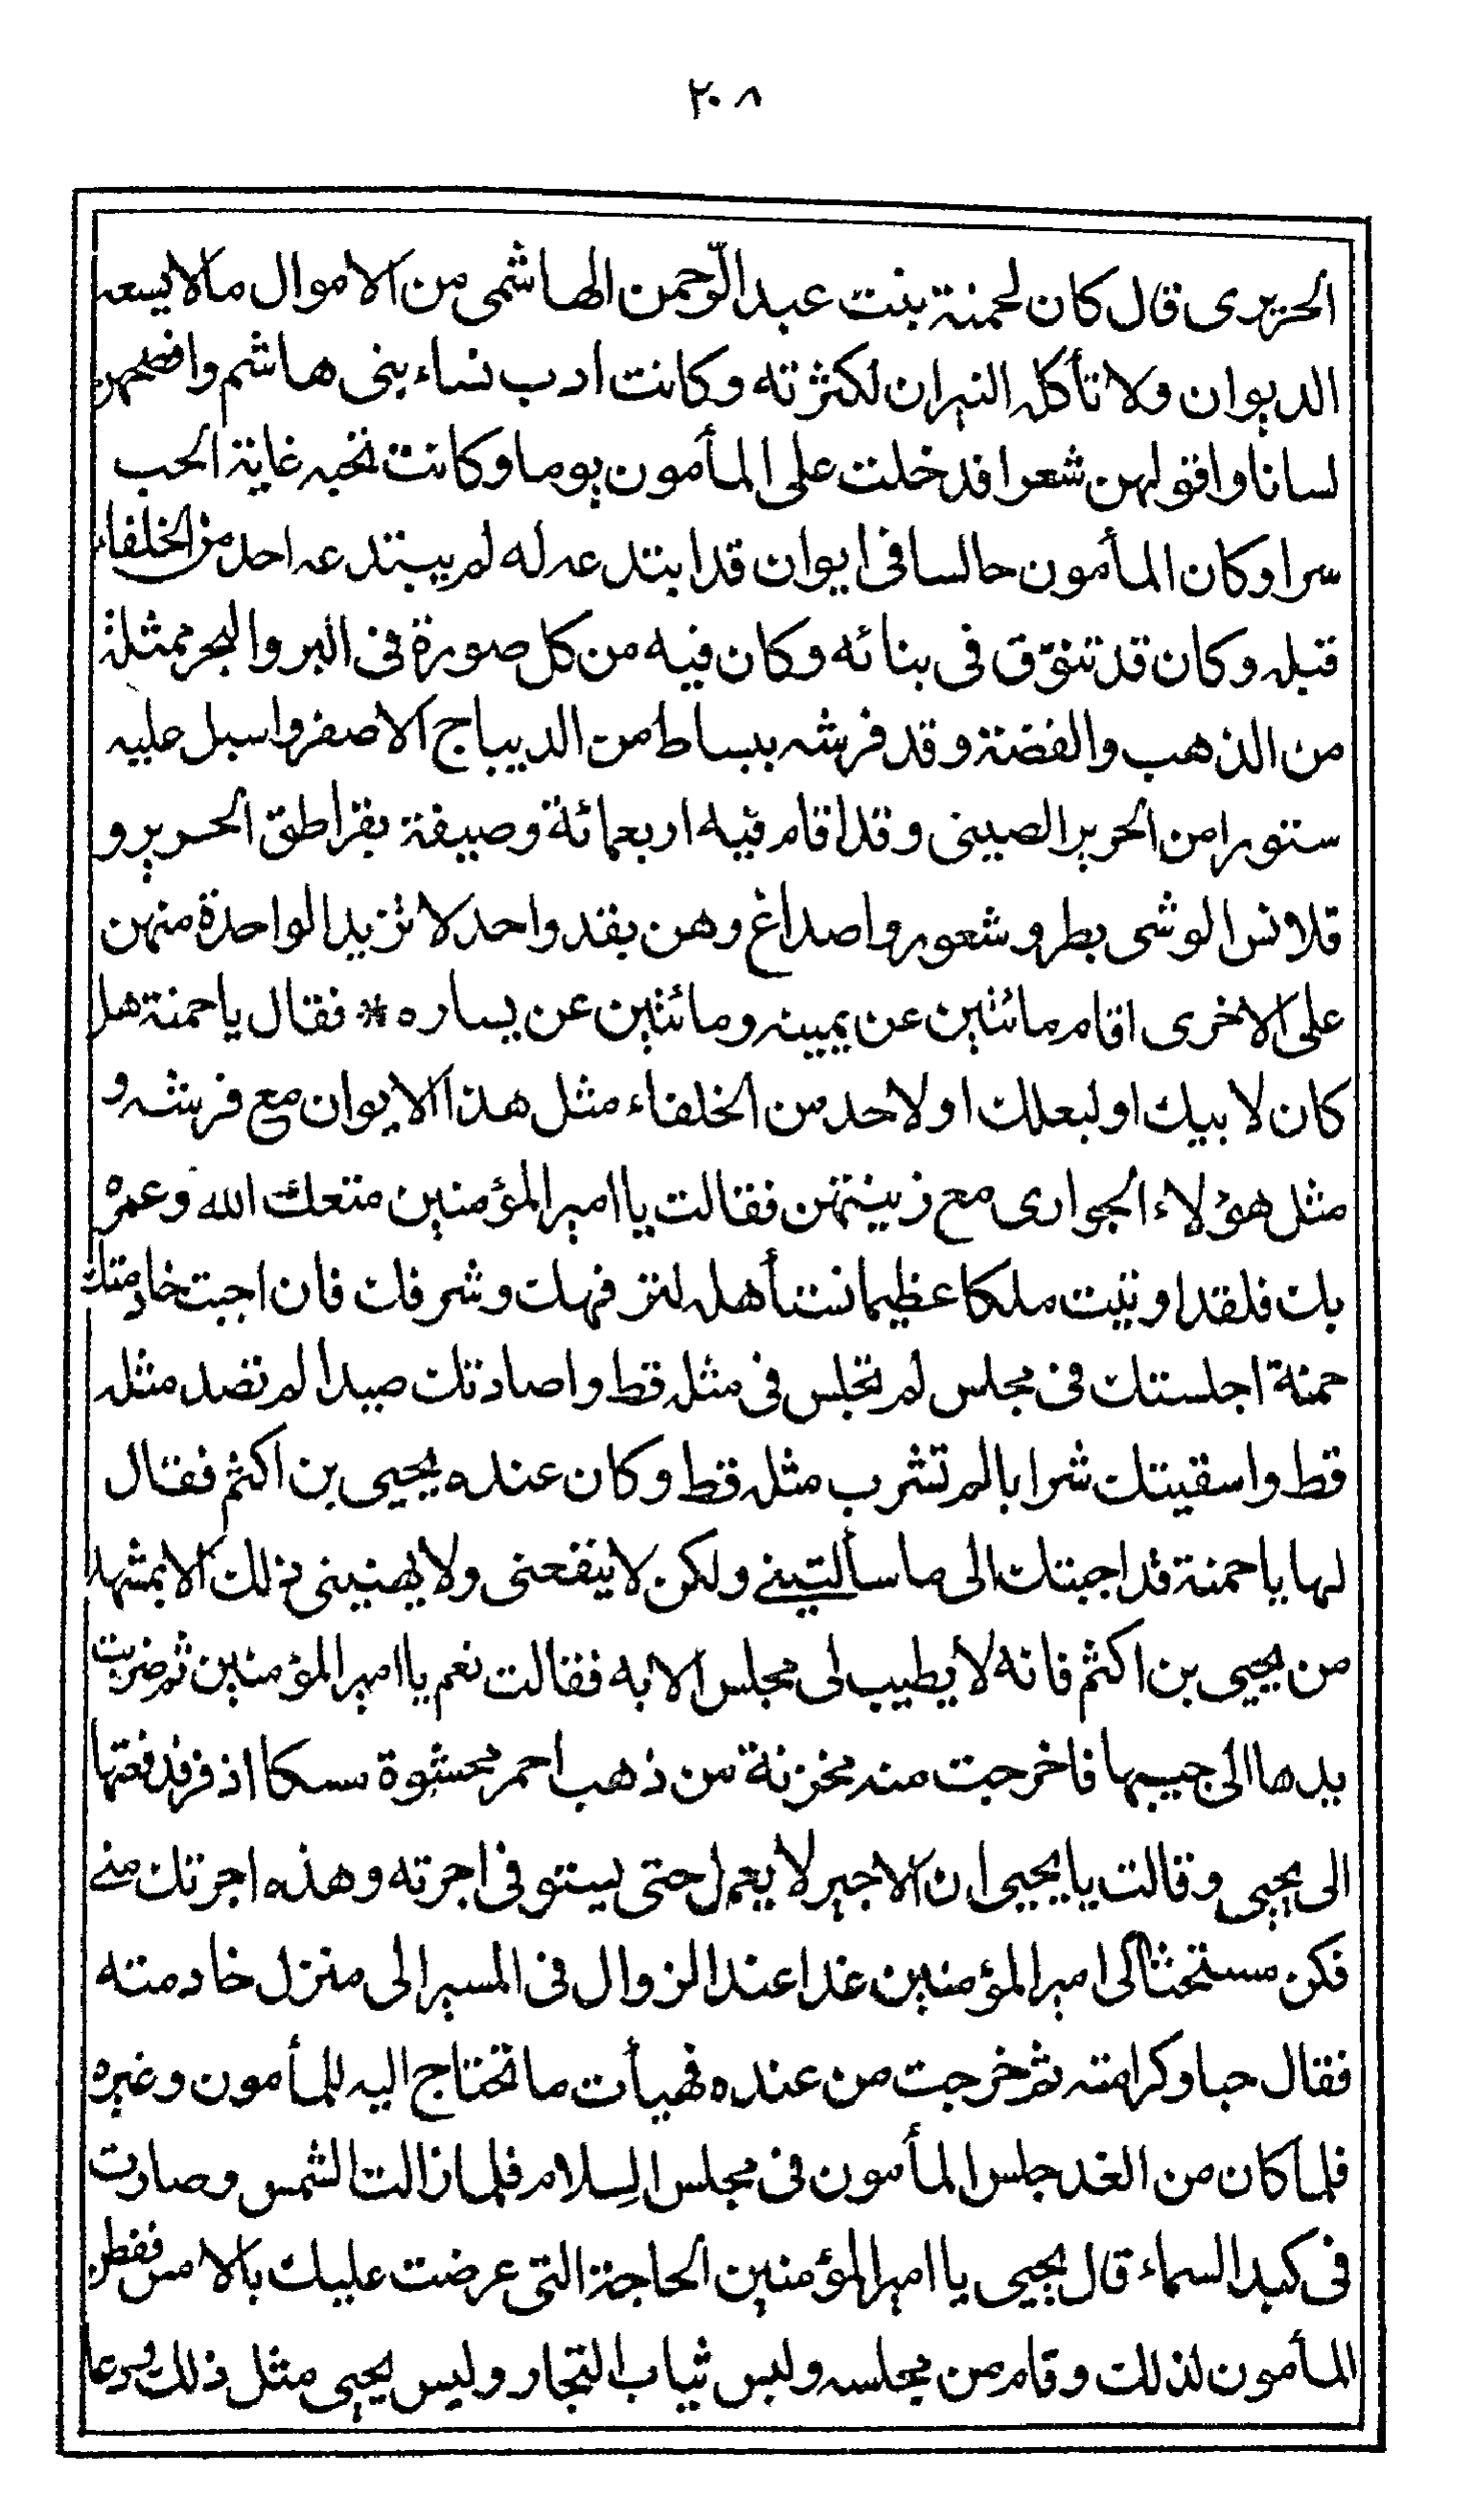 ٢٠٨
الحريرى قال كان لحمنة بنت عبد الرّحمن الهاشمى من الاموال مالايسعه
الديوان ولا تأكله النيران لكثرته وكانت ادب نساء بنى هاشم وافصحهن
لسانا واقولهن شعرا فدخلت على المأمون يوما وكانت تحبه غاية الحب
سرا وكان المأمون جالسا فى ايوان قد ابتدعه له لم يبتدعه احد من الخلفاء
قبله وكان قد تنوّق فى بنائه وكان فيه من كل صورة فى البر والبحر ممثلة
من الذهب والفضة وقد فرشه ببساط من الديباج الاصفر واسبل عليه
ستورا من الحرير الصينى وقد اقام فيه اربعمائة وصيفة بقراطق الحرير و
قلانس الوشى بطر وشعور واصداغ وهن بقد واحد لا تزيد الواحدة منهن
على الاخرى اقام مائتين عن يمينه ومائتين عن يساره * فقال يا حمنة هل
كان لابيك او لبعلك او لاحد من الخلفاء مثل هذا الايوان مع فرشه و
مثل هؤلاء الجوارى مع زينتهن فقالت يا امير المؤمنين متعك الله وعمره
بك فلقد اوتيت ملكا عظيما انت أهله لترفهك وشرفك فان اجبت خادمتك
حمنة اجلستك فى مجلس لم تجلس فى مثله قط واصادتك صيدا لم تصد مثله
قط واسقيتك شرابا لم تشرب مثله قط وكان عنده يحيى بن اكثم فقال
لها يا حمنة قد اجبتك الى ما سألتينى ولكن لا ينفعنى ولا يهنينى ذلك الا بمشهد
من يحيى بن اكثم فانه لا يطيب لى مجلس الا به فقالت نعم يا امير المؤمنين ثم ضربت
بيدها الى جيبها فاخرجت منه مخزنة من ذهب احمر محشوة مسكا اذفر فدفعتها
الى يحيى وقالت يا يحيى ان الاجير لا يعمل حتى يستوفى اجرته وهذه اجرتك منى
فكن مستحثا لى امير المؤمنين غدا عند الزوال فى المسير الى منزل خادمته
فقال حبا وكرامة ثم خرجت من عنده فهيأت ما تحتاج اليه للمأمون وغيره
فلما كان من الغد جلس المأمون فى مجلس السلام فلما زالت الشمس وصارت
فى كبد السماء قال يحيى يا امير المؤمنين الحاجة التى عرضت عليك بالامس ففطن
المأمون لذلك وقام من مجلسه ولبس ثياب التجار ولبس يحيى مثل ذلك ودعا